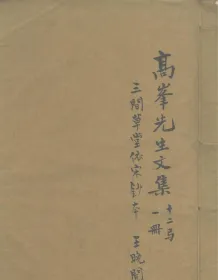 高峯先生文集
十二卷
一冊
三間草堂仿宋鈔本 王晚聞